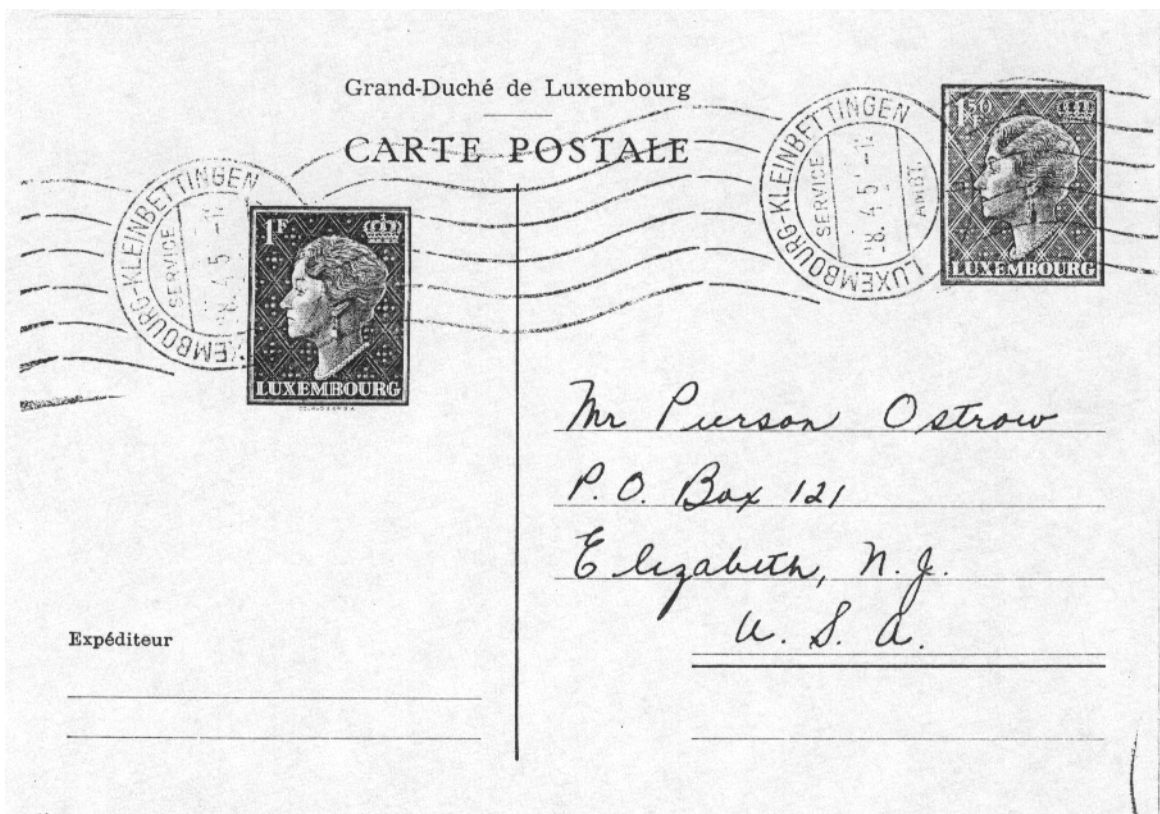 Grand-Duché de Luxembourg
CARTE POSTALE
LUXEMBOURG-KLEINBETTINGEN
SERVICE AMBT.
1.50 F
LUXEMBOURG
KLEINBETTINGEN
SERVICE
1F
LUXEMBOURG
Mr Pierson Ostrow
P.O. Box 121
Elizabeth, N.J.
U.S.A.
Expéditeur